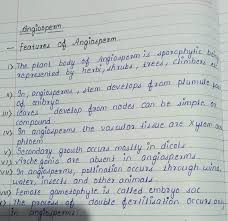 Angiosperm
- Features of Angiosperm
i> The plant body of Angiosperm is sporophytic
represented by herbs, shrubs, trees, climbers
ii) In, angiosperms, stem develops from plumule
of embryo
iii) leaves develop from nodes can be simple or
compound.
iv) In angiosperms the vascular tissue are xylem and
phloem
v) Secondary growth occurs mostly in dicots
vi) Archegonia are absent in angiosperms
vii) In angiosperms, pollination occurs through wind,
water, insects and other animals
viii) Female gametophyte is called embryo sac
ix) The process of double fertilisation occurs only
in angiosperms